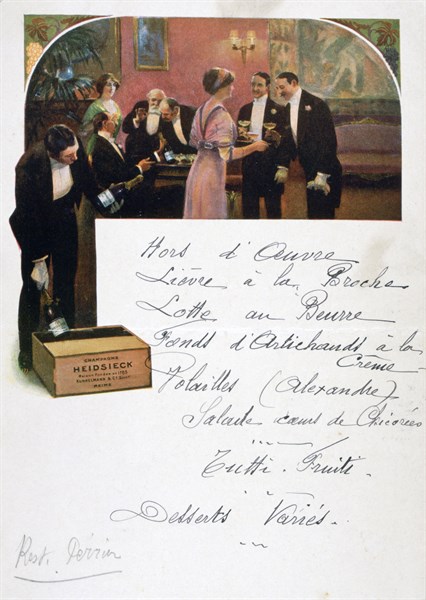 CHAMPAGNE
HEIDSIECK
MAISON FONDÉE EN 1785
REIMS
Hors d'Œuvre
Lièvre à la Broche
Lotte au Beurre
Fonds d'Artichauds à la
Crême
Volailles (Alexandre)
Salade cœurs de Chicorées
Tutti-Fruiti.
Desserts Variés.
Rest.